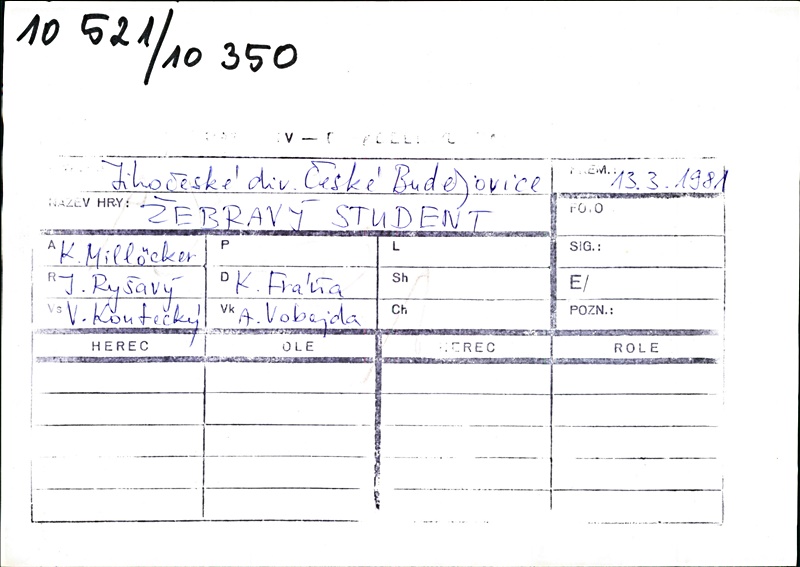 10 521/10 350
Jihočeské div. České Budějovice
PREM.: 13.3.1981
NÁZEV HRY: ŽEBRAVÝ STUDENT
FOTO
A K. Millöcker P L SIG.:
R J. Ryšavý D K. Fráňa Sh E/
Vs V. Koutecký Vk A. Vobejda Ch POZN.:
HEREC OLE EREC ROLE